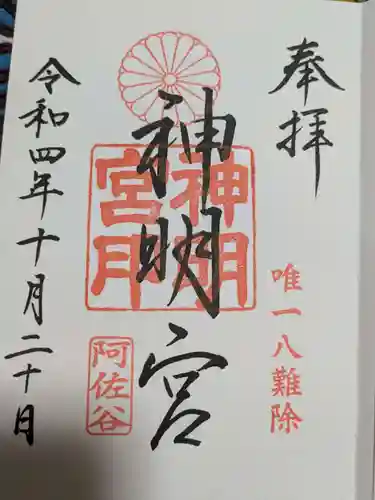 奉拝
唯一八難除
神明宮
神明宮
阿佐谷
令和四年十月二十日